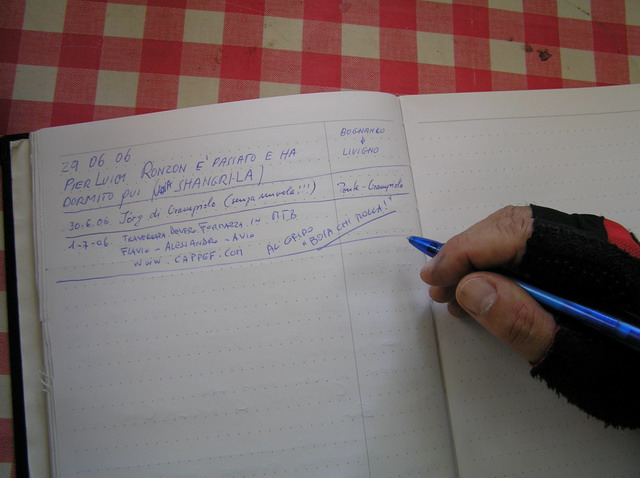 29 06 06
PIER LUIGI RONZON E' PASSATO E HA
DORMITO QUI SHANGRI-LA)
BOGNANCO
↓
LIVIGNO
30.6.06 Jörg di (senza !!!) Ponte -
1-7-06 TRAVERSATA DEVERO FORMAZZA IN MTB
FLAVIO - ALESSANDRO - AVIO
WWW. CAPPEF. COM AL GRIDO "BOIA CHI MOLLA!"